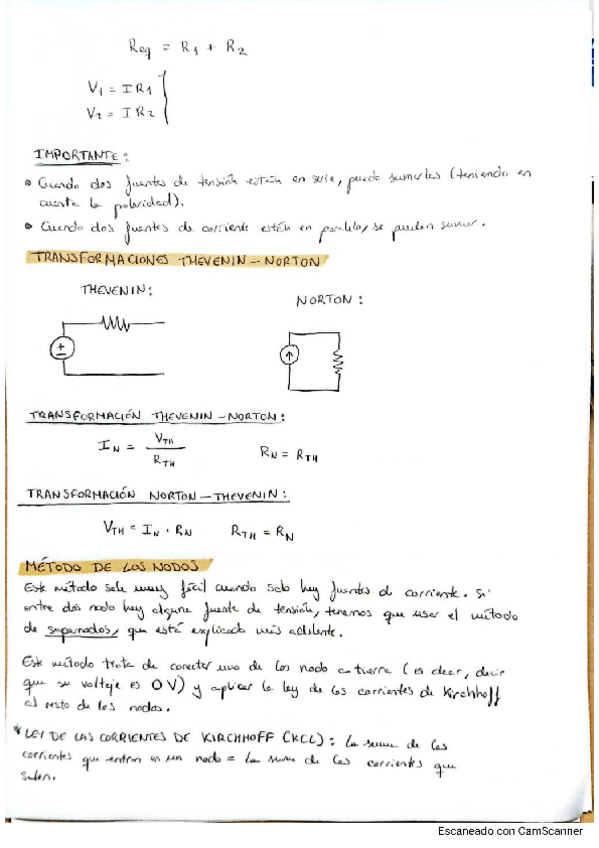 Req = R1 + R2
V1 = I R1
V2 = I R2
IMPORTANTE:
• Cuando dos fuentes de tensión están en serie, puedo sumarlas (teniendo en
cuenta la polaridad).
• Cuando dos fuentes de corriente están en paralelo, se pueden sumar.
TRANSFORMACIONES THEVENIN - NORTON
THEVENIN:
NORTON:
TRANSFORMACIÓN THEVENIN - NORTON:
IN = VTH / RTH RN = RTH
TRANSFORMACIÓN NORTON - THEVENIN:
VTH = IN · RN RTH = RN
MÉTODO DE LOS NODOS
Este método sale muy fácil cuando solo hay fuentes de corriente. Si
entre dos nodo hay alguna fuente de tensión, tenemos que usar el método
de supernodos, que está explicado más adelante.
Este método trata de conectar uno de los nodo a tierra (es decir, decir
que su voltaje es 0 V) y aplicar la ley de las corrientes de Kirchhoff
al resto de los nodos.
* LEY DE LAS CORRIENTES DE KIRCHHOFF (KCL): La suma de las
corrientes que entran en un nodo = La suma de las corrientes que
salen.
Escaneado con CamScanner